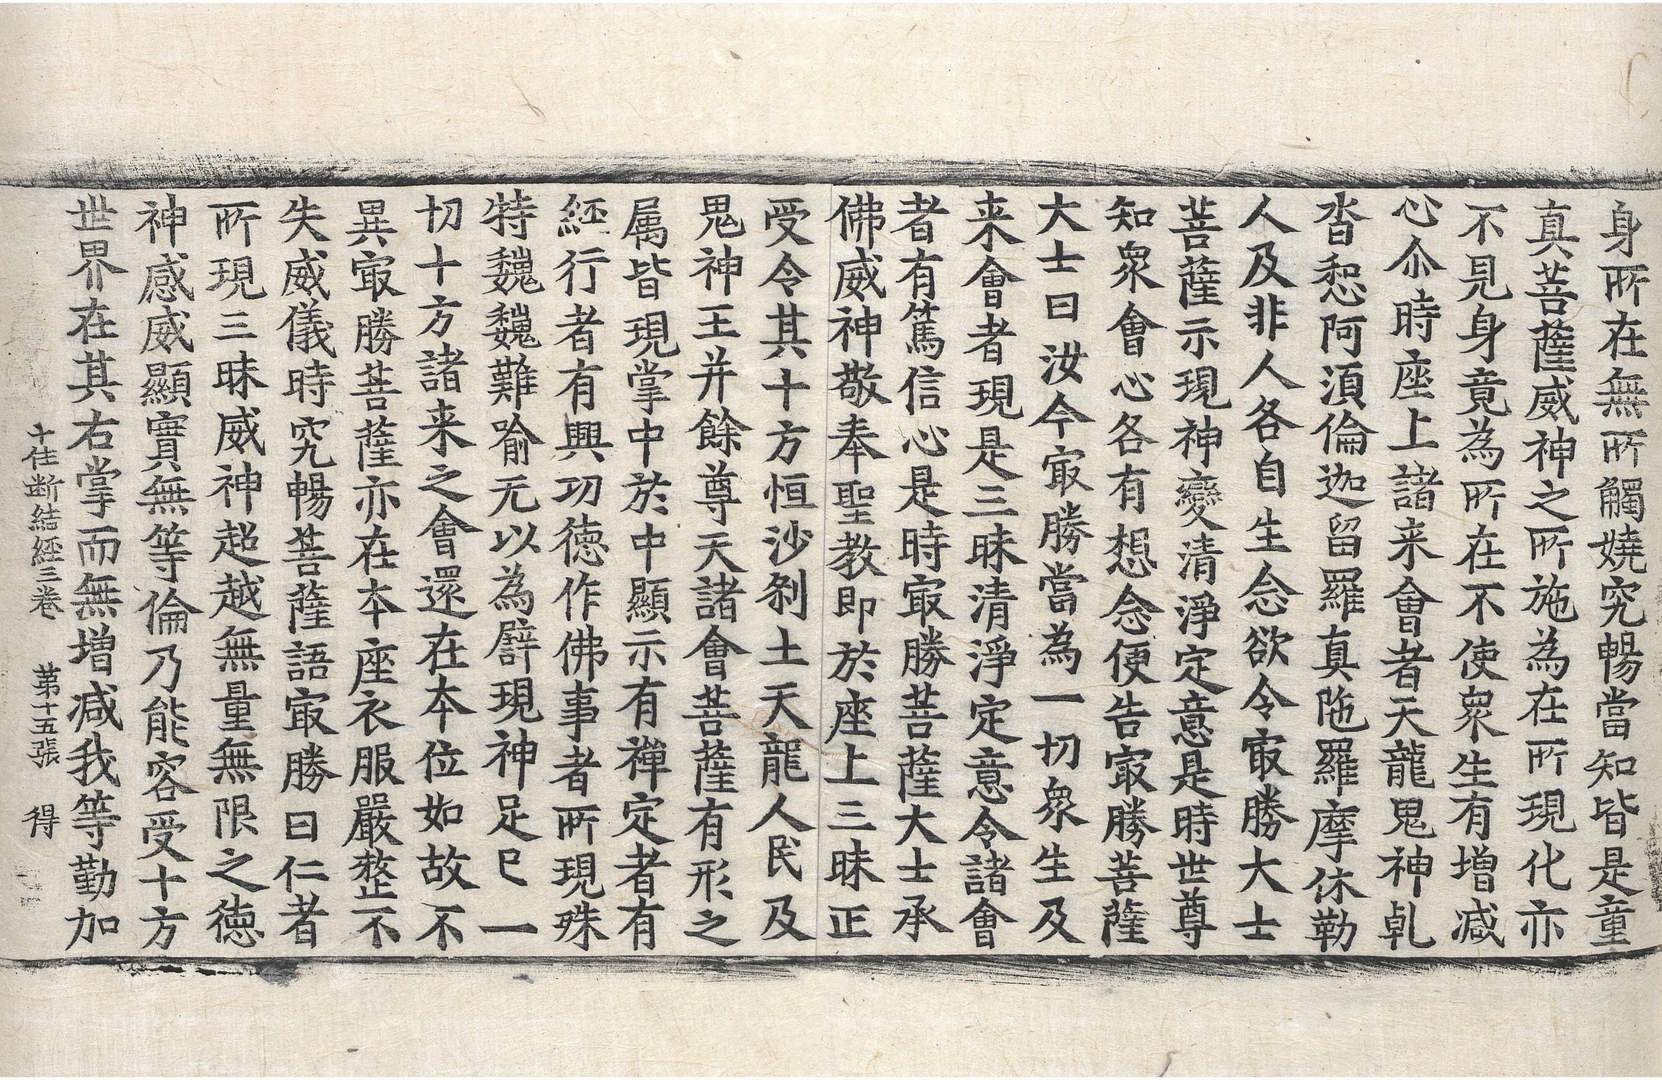 身所在無所觸嬈究暢當知皆是童
真菩薩威神之所施為在所現化亦
不見身竟為所在不使衆生有增减
心尒時座上諸来會者天龍鬼神乹
沓惒阿湏倫迦留羅真陁羅摩休勒
人及非人各自生念欲令㝡勝大士
菩薩示現神變清淨定意是時世尊
知衆會心各有想念便告㝡勝菩薩
大士曰汝今㝡勝當為一切衆生及
来會者現是三昧清淨定意令諸會
者有篤信心是時㝡勝菩薩大士承
佛威神敬奉聖教即於座上三昧正
受令其十方恒沙刹土天龍人民及
鬼神王并餘尊天諸會菩薩有形之
属皆現掌中於中顯示有禪定者有
經行者有興功德作佛事者所現殊
特魏魏難喻无以為辟現神足已一
切十方諸来之會還在本位如故不
異㝡勝菩薩亦在本座衣服嚴整不
失威儀時究暢菩薩語㝡勝曰仁者
所現三昧威神超越無量無限之德
神感威顯實無等倫乃能容受十方
世界在其右掌而無增减我等勤加
十住断結經三卷 第十五張 得